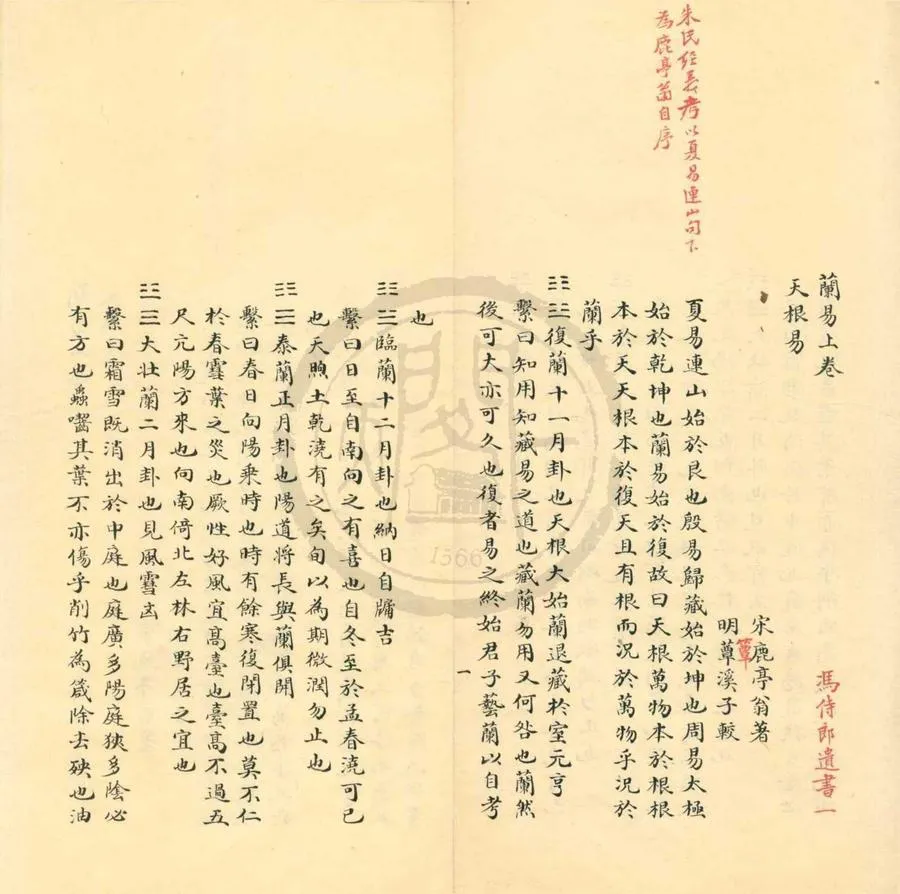 朱氏經義考以夏易連山句下
為鹿亭翁自序
馮侍郎遺書一
蘭易上卷
天根易
宋鹿亭翁著
明蕈溪子較
簟
夏易連山始於艮也殷易歸藏始於坤也周易太極
始於乾坤也蘭易始於復故曰天根萬物本於根根
本於天天根本於復天且有根而況於萬物乎況於
蘭乎
䷗復蘭十一月卦也天根大始蘭退藏於室元亨
繫曰知用知藏易之道也藏蘭勿用又何咎也蘭然
後可大亦可久也復者易之終始君子藝蘭以自考
一
也
䷒臨蘭十二月卦也納日自牖吉
繫曰日至自南向之有喜也自冬至於孟春澆可已
也天煦土乾澆有之矣旬以為期微潤勿止也
䷊泰蘭正月卦也陽道將長與蘭俱開
繫曰春日向陽乘時也時有餘寒復閉置也莫不仁
於春雪葉之災也厥性好風宜高臺也臺高不過五
尺亢陽方來也向南倚北左林右野居之宜也
䷡大壯蘭二月卦也見風雪凶
繫曰霜雪既消出於中庭也庭廣多陽庭狹多陰必
有方也蟲嚙其葉不亦傷乎削竹為箴除去殃也油
1566